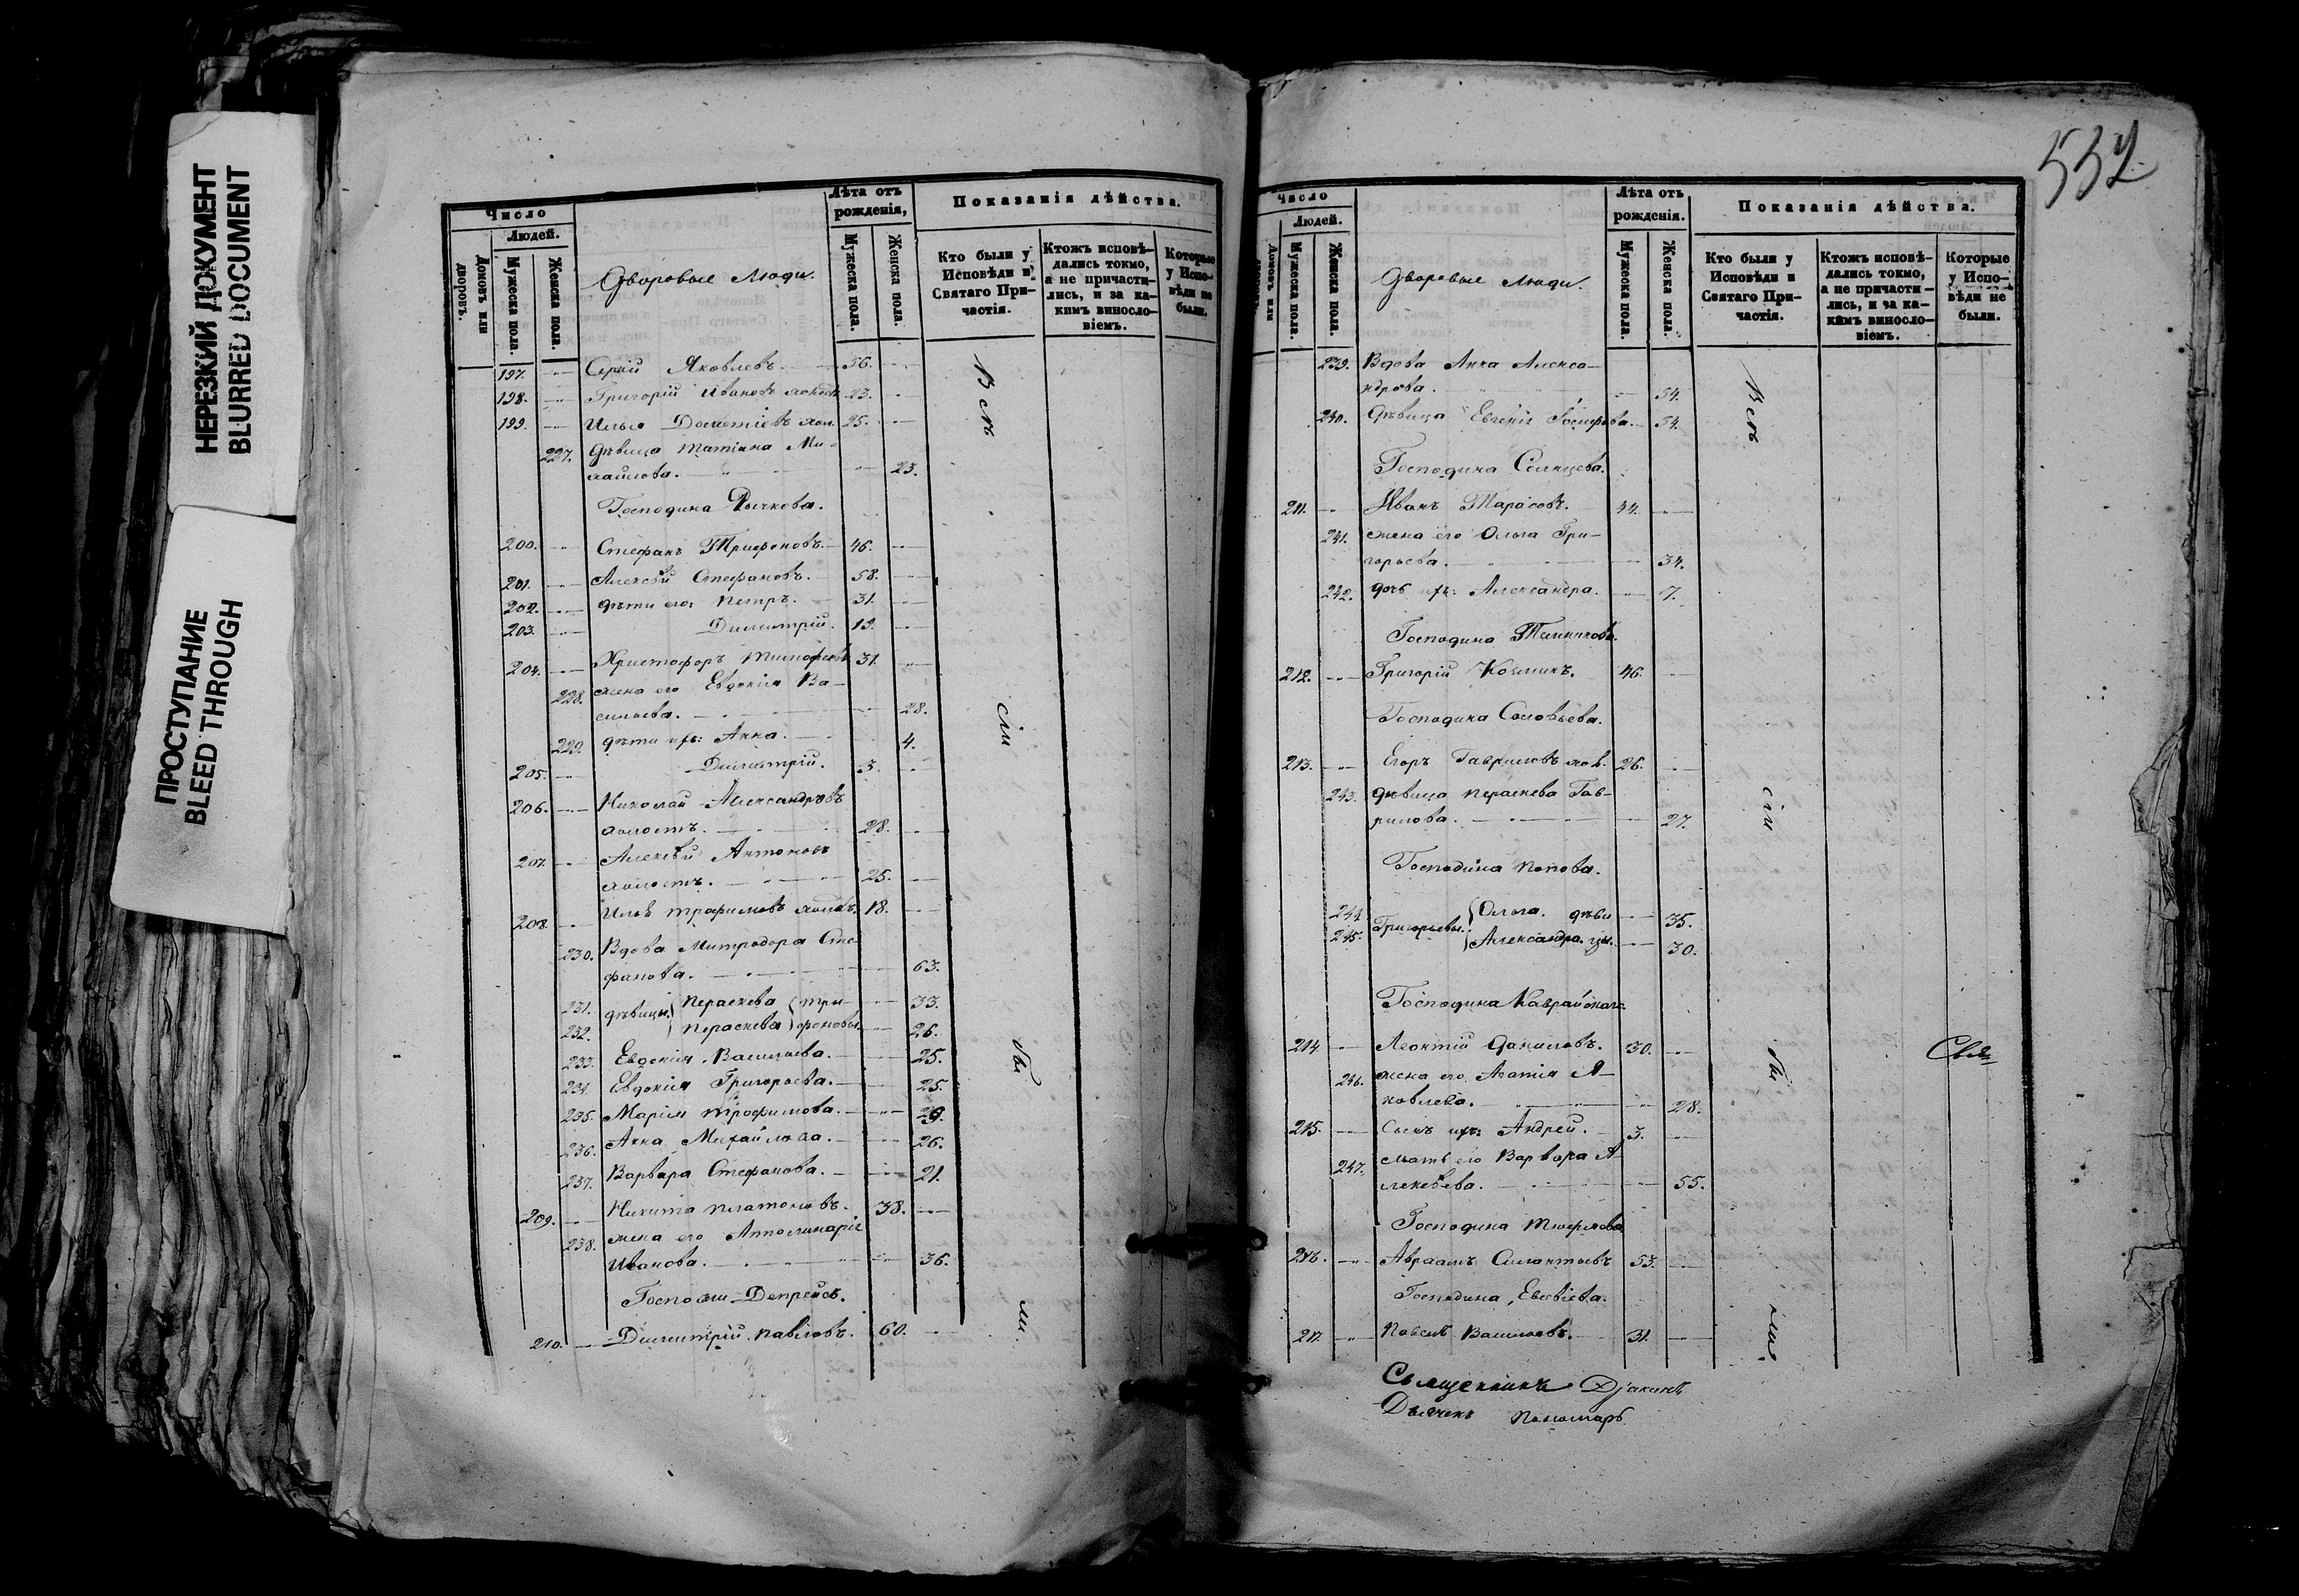 НЕРЕЗКИЙ ДОКУМЕНТ
BLURRED DOCUMENT
ПРОСТУПАНИЕ
BLEED THROUGH
Число
Людей.
Домовъ или дворовъ.
Мужеска пола.
Женска пола.
Дворовые Люди.
Лѣта отъ рожденія,
Мужеска пола.
Женска пола.
Показанія дѣйства.
Кто были у Исповѣди и Святаго Причастія.
Ктожъ исповѣдались токмо, а не причастились, и за какимъ винословіемъ.
Которые у Исповѣди не были.
197. Сергій Яковлевъ. 56.
198. Григорій Ивановъ 23.
199. 25.
227. Дѣвица Татіана Ми-
хайлова. 23.
Господина Рычкова.
200. Стефанъ Трифоновъ. 46.
201. Алексѣй Стефановъ. 58.
202. дѣти его: Петръ. 31.
203. Димитрій. 19.
204. Христофоръ Тимофеевъ 31.
228. жена его Евдокія Ва-
сильева. 28.
229. дѣти ихъ: Анна. 4.
205. Димитрій. 3.
206. Николай Александровъ
холостъ. 28.
207. Алексѣй Антоновъ
холостъ. 25.
208. Трофимовъ 18.
230. Вдова Митродора Сте-
фанова. 63.
231. дѣвицы Пераскева Три- 33.
232. Пераскева фоновы. 26.
233. Евдокія Васильева. 25.
234. Евдокія Григорьева. 25.
235. Марія Трофимова. 29.
236. Анна Михайлова. 26.
237. Варвара Стефанова. 21.
209. Никита Платоновъ. 38.
238. жена его Апполинарія
Иванова. 36.
Госпожи Депрейсъ.
210. Димитрій Павловъ. 60.
Всѣ
сіи
бы
ли
532
Число
Людей.
Домовъ или
Мужеска пола.
Женска пола.
Дворовые Люди.
Лѣта отъ рожденія.
Мужеска пола.
Женска пола.
Показанія дѣйства.
Кто были у Исповѣди и Святаго Причастія.
Ктожъ исповѣдались токмо, а не причастились, и за какимъ винословіемъ.
Которые у Исповѣди не были.
239. Вдова Анна Алекса-
ндрова. 54.
240. Дѣвица Евгенія Іосифова. 54.
Господина Солнцева.
211. Иванъ Тарасовъ. 44.
241. жена его Ольга Гри-
горьева. 34.
242. дочь ихъ: Александра. 7.
Господина
212. Григорій Козминъ. 46.
Господина Соловьева.
213. Егоръ Гавриловъ хол. 26.
243. дѣвица Пераскева Гав-
рилова. 27.
Господина Попова.
244. Григорьевы. Ольга. дѣви- 35.
245. Александра. цы. 30.
Господина Каврайскаго.
214. Леонтій Даниловъ. 30.
246. жена его Агапія Я-
ковлева. 28.
215. Сынъ ихъ: Андрей. 3.
247. мать его Варвара А-
лексѣева. 55.
Господина
216. Авраамъ 53.
Господина Евсѣіева.
217. Васильевъ. 31.
Всѣ
сіи
бы
ли.
Свя
Священникъ Діаконъ
Дьячекъ Пономарь